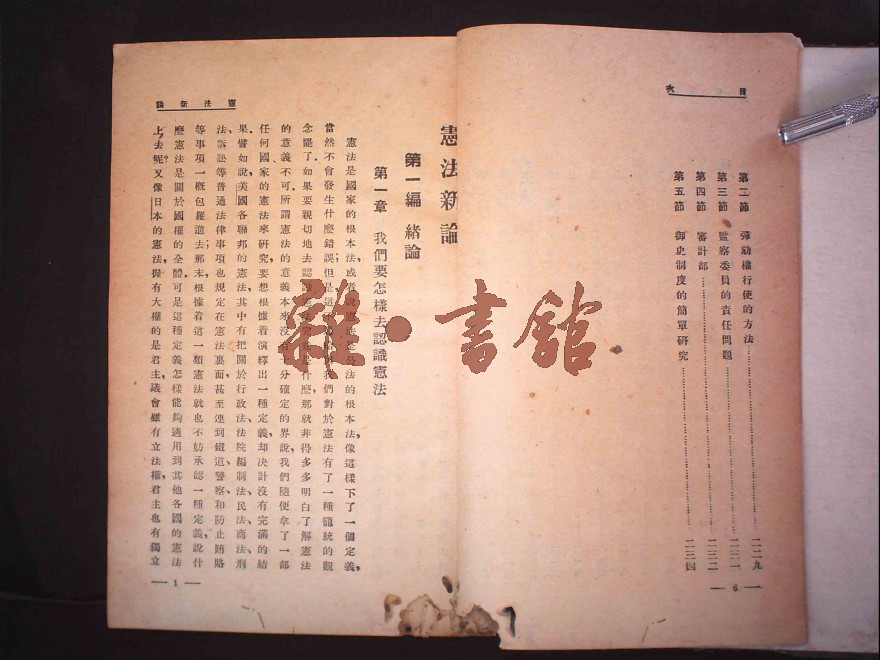 目次
第二節 彈劾權行使的方法 二二九
第三節 監察委員的責任問題 二三一
第四節 審計部 二三二
第五節 御史制度的簡單研究 二三四
— 6 —
憲法新論
憲法新論
第一編 緒論
第一章 我們要怎樣去認識憲法
憲法是國家的根本法,或者說憲法是公法的根本法,像這樣下了一個定義,
當然不會發生什麼錯誤;但是這 我們對於憲法有了一種籠統的觀
念罷了.如果要親切地去認識憲 什麼,那就非得多多明白了解憲法
的意義不可.所謂憲法的意義本來沒有十分確定的界說,我們隨便拿了一部
任何國家的憲法來研究,要想根據着演繹出一種定義,却決計沒有完滿的結
果.譬如說,美國各聯邦的憲法,其中有把關於行政法、法院編制法、民法、商法、刑
法、訴訟等普通法律事項也規定在憲法裏面,甚至連到鐵道、警察和防止賄賂
等事項一概包羅進去;那末,根據着這一類憲法就也不妨承認一種定義,說什
麼憲法是關於國權的全體.可是這種定義怎樣能夠適用到其他各國的憲法
上去呢?又像日本的憲法,握有大權的是君主,議會雖有立法權,君主也有獨立
— 1 —
雜·書館